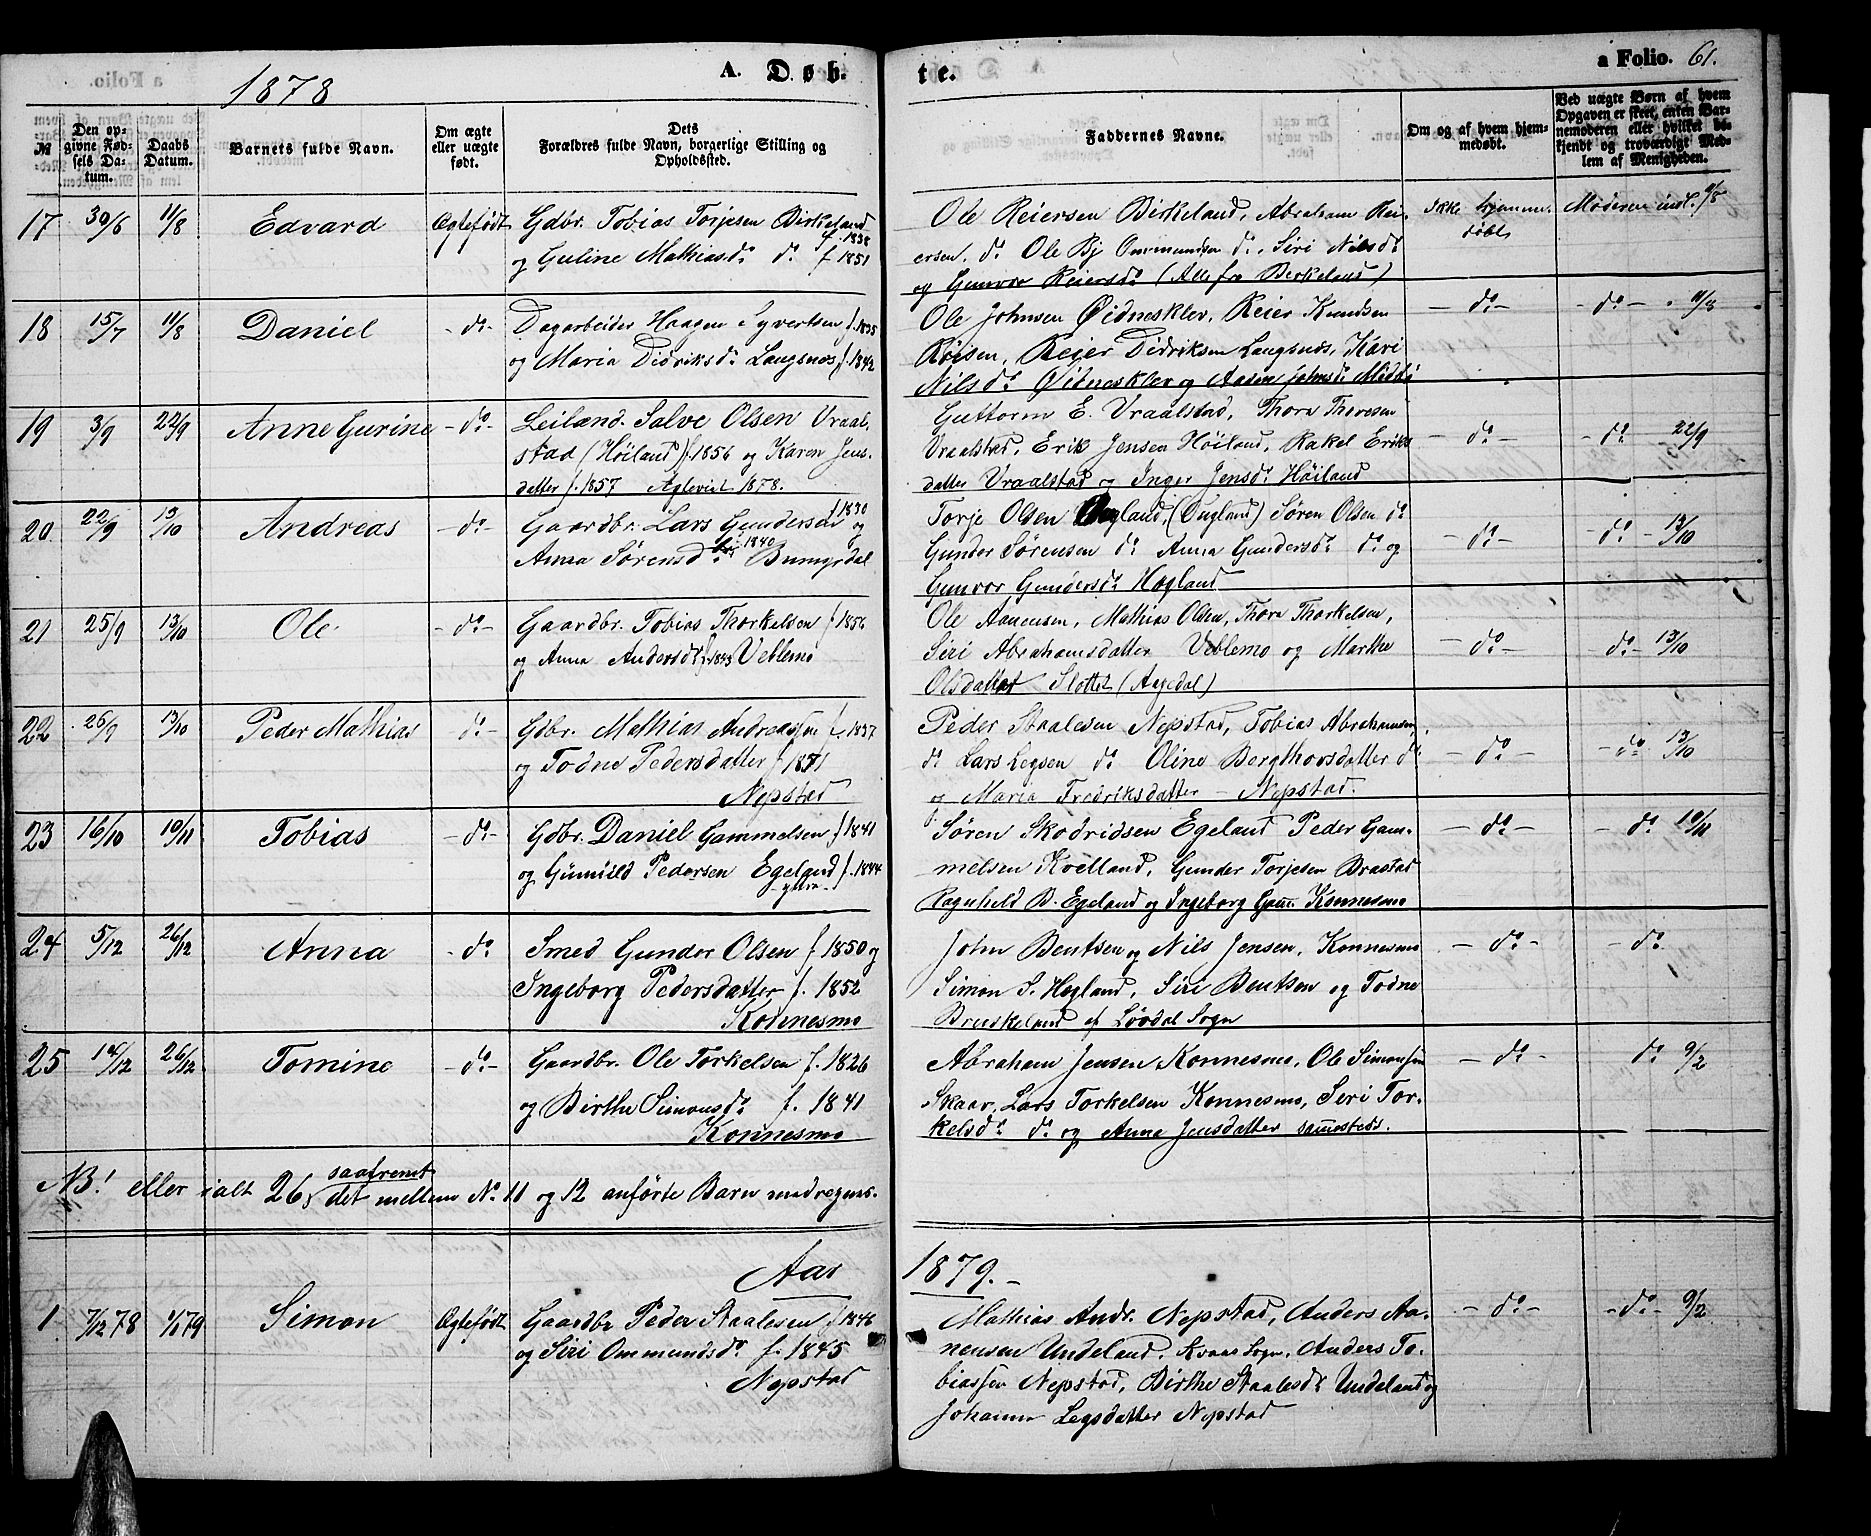 1878
A. Døb-
te.
a Folio. 61.
№
Den opgivne Fødsels Datum.
Daabs Datum.
Barnets fulde Navn.
Om ægte eller uægte født.
Dets Forældres fulde Navn, borgerlige Stilling og Opholdssted.
Faddernes Navne.
Om og af hvem hjemmedøbt.
Ved uægte Børn af hvem Opgaven er skeet, enten Barnemoderen eller hvilket bekjendt og troværdigt Medlem af Menigheden.
17 30/6 11/8 Edvard Ægtefødt Gdbr. Tobias Torjesen Birkeland f. 1838
og Guline Mathiasd. d. f. 1851
Ole Reiersen Birkeland, Abraham Rei-
ersen. do Ole Bj Ommundsen do, Siri Nilsd.
og Gunvor Reiersd. (Alle fra Berkeland)
Ikke hjemme-
døbt
Moderen indl. 11/8
18 15/7 11/8 Daniel -do- Dagarbeider Haagen Syvertsen f. 1835
og Maria Didriksd. Langsnæs f. 1842
Ole Johnsen Øidnesklev, Reier Knudsen
Røisen, Reier Didriksen Langsnæs, Kari
Nilsd. Øidnesklev og Aasen Johnsd.
-do- -do- 11/8
19 3/9 22/9 Anne Gurine -do- Leilænd. Salve Olsen Vraal-
stad (Høiland) f. 1856 og Karen Jens-
datter f. 1857 Ægteviet 1878.
Guttorm E. Vraalstad, Thora Thoresen
Vraalstad, Erik Jensen Høiland, Rakel Eriks
datter Vraalstad og Inger Jensd. Høiland
-do- -do- 22/9
20 22/9 13/10 Andreas -do- Gaardbr. Lars Gundersen f 1830 og
Anna Sørensd. f. 1840
Torje Olsen (Ougland) Søren Olsen do
Gunder Sørensen do Anna Gundersd. do og
Gunvor Gundersd. Hogland
-do- -do- 13/10
21 25/9 13/10 Ole -do- Gaardbr. Tobias Thorkelsen f. 1856
og Anna Andersd. f. 1843 Veblemo
Ole Aanensen, Mathias Olsen, Thore Thorkelsen,
Siri Abrahamsdatter Veblemo og Marthe
Olsdatter Slottet (Agedal)
-do- -do- 13/10
22 26/9 13/10 Peder Mathias -do- Gdbr. Mathias Andreassen f. 1837
og Todne Pedersdatter f 1851
Nepstad
Peder Staalesen Nepstad, Tobias Abrahamsen,
do Lars Legsen do Oline Bergthorsdatter do
og Maria Fredriksdatter - Nepstad.
-do- -do 13/10
23 16/10 10/11 Tobias -do- Gdbr. Daniel Gammelsen f 1841
og Gunnild Pedersen Egeland f. 1844
- ytra -
Søren Skodridsen Egeland Peder Gam-
melsen Kvelland, Gunder Torjesen Brastad
Ragnhild B. Egeland og Ingeborg Gam. Konnesmo
-do- -do 10/11
24 5/12 26/12 Anna -do- Smed Gunder Olsen f 1850 og
Ingeborg Pedersdatter f. 1852
Konnesmo
John Bentsen og Nils Jensen, Konnesmo
Simon S. Hogland, Siri Bentsen og Todne
Bruskeland af Løvdal Sogn
-do- -do
25 14/12 26/12 Tomine -do- Gaardbr. Ole Torkelsen f. 1826
og Birthe Simonsd. f. 1841
Konnesmo
Abraham Jensen Konnesmo, Ole Simonsen
Skaar, Lars Torkelsen Konnesmo, Siri Tor-
kelsd. do og Anne Jensdatter sammesteds.
-do- do 9/2
NB! eller ialt 26, saafremt det mellem No 11 og 12 anførte Barn medregnes.
Aar 1879.-
1. 7/12 78 1/1 79 Simon Ægtefødt Gaardbr Peder Staalesen f 1848
og Siri Ommundsd. f. 1845
Nepstad
Mathias Andr. Nepstad, Anders Aa-
nensen Undeland, Kvaas Sogn, Anders To-
biassen Nepstad, Birthe Staalesd. Undeland og
Johanne Legsdatter Nepstad
-do- -do- 9/2